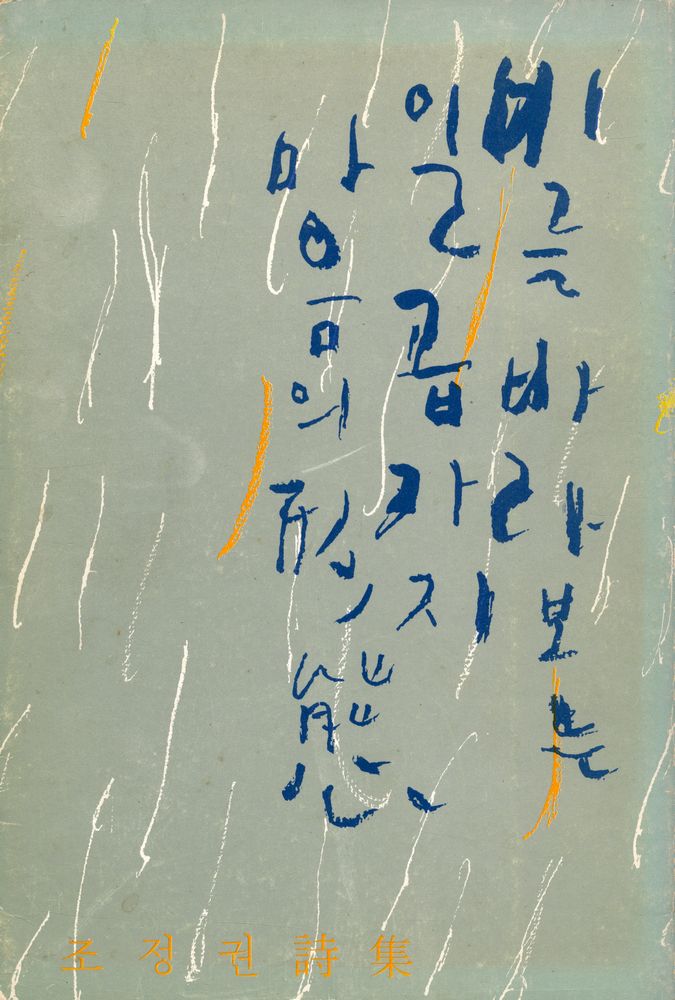 비를바라보는
일곱가지
마음의形態
조정권詩集